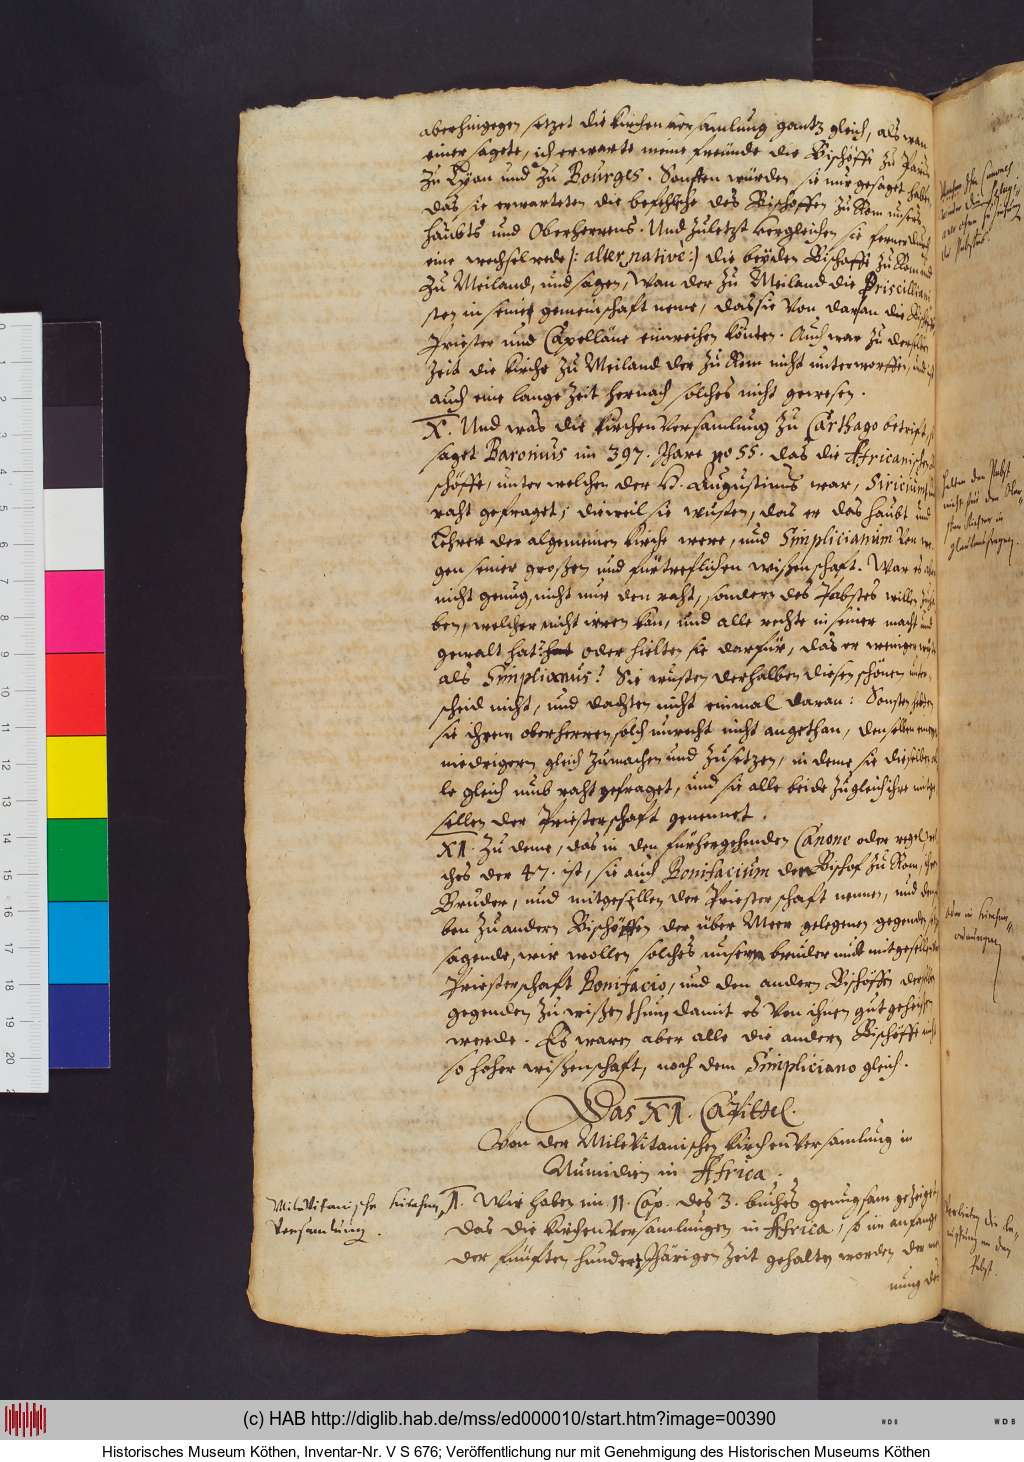 aberhingegen setzet die kirchenversamlung gantz gleich, als wan
einer sagete, ich erwarte meine freünde die Bischöffe zu Paris
zu Lyon und zu Bourges. Sonsten würden sie nur gesaget haben,
das sie erwarteten die befehliche des Bischoffen zu Rom unsers
haubts und Oberherrens. Und zuletzt vergleichen sie ferner durch
eine wechselrede /: alternativè:/ die beÿden Bischoffe zu Rom und
zu Meiland, und sagen, Wan der zu Meiland die Priscilliani
sten in seine gemeinschaft neme, das sie von daran die
Priester und Capelläne einreihen könten. Auch war zu derselben
Zeit die kirche zu Meiland der zu Rom nicht unterworffen, und
auch eine lange Zeit hernach solches nicht gewesen.
X. Und was die kirchenversamlung zu Carthago betrift,
saget Baronius im 397. Jhare no 55. das die Africanischen
schöffe, unter welchen der H. Augustinus war, Siricium
raht gefraget, dieweil sie wusten, das er das haubt und
Lehrer der algemeinen kirche were, und Simplicianum von we
gen seiner großen und fürtreflichen wißenschaft. War es
nicht genug, nicht nur den raht, sondern des Pabstes willen
ben, welcher nicht irren kan, und alle rechte in seiner macht und
gewalt hat? oder hielten sie darfür, das er weniger
als Simplianus? Sie wusten derhalben diesen schönen unter
scheid nicht, und dachten nicht einmal daran: Sonsten hetten
sie ihrem oberherren solch unrecht nicht angethan, denselben
niedrigern gleich zumachen und zusetzen, in deme sie dieselben
le gleich umb raht gefraget, und sie alle beide zugleich ihre mitge
sellen der Priesterschaft genennet.
XI. Zu deme, das in den fürhergehenden Canone oder regel, wel
ches der 47. ist, sie auch Bonifacium den Bischof zu Rom, ihren
Bruder, und mitgesellen der Priesterschaft nennen, und
ben zu andern Bischöffen der über Meer gelegenen gegenden,
sagende, wir wollen solches unserm bruder und mitgesellen
Priesterschaft Bonifacio, und den andern Bischöffen derselben
gegenden zu wißen thun, damit es von ihnen gut geheißen
werde. Es waren aber alle die andern Bischöffe nicht
so hoher wißenschaft, noch dem Simpliciano gleich.
Das XI. Capittel.
Von der Milevitanischen kirchenversamlung in
Numidien in Affrica.
Milevitanische kirchen
Versamlung.
I. Wir haben im 11. Cap. des 3. buches genugsam gezeiget
das die kirchenversamlungen in Affrica, so im anfange
der fünften hundertjhärigen Zeit gehalten worden der
nung des
halten den Pabst
nicht für den Ober
sten Richter in
glaubenssachen.
Pabst.
0
1
2
3
4
5
6
7
8
9
10
11
12
13
14
15
16
17
18
19
20
(c) HAB http://diglib.hab.de/mss/ed000010/start.htm?image=00390
WDB
WDB
Historisches Museum Köthen, Inventar-Nr. V S 676; Veröffentlichung nur mit Genehmigung des Historischen Museums Köthen